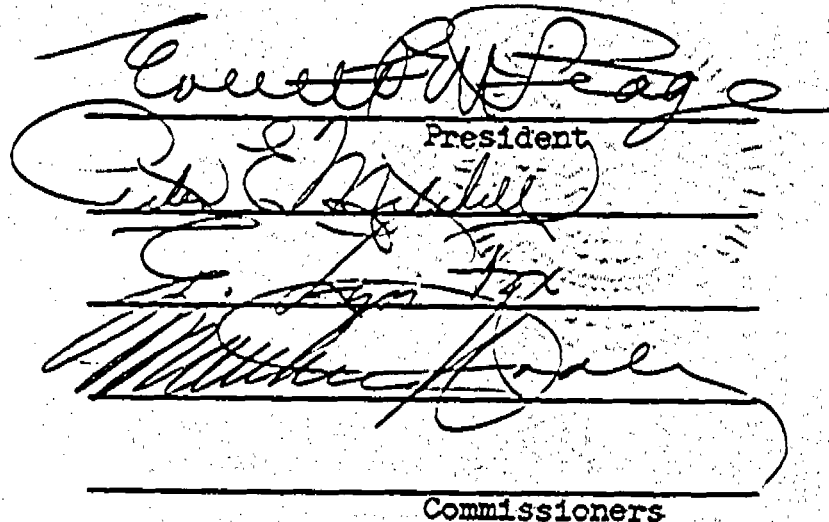 Everett C. McKeage
President
Peter E. Mitchell
E. Lyn Fox
Commissioners